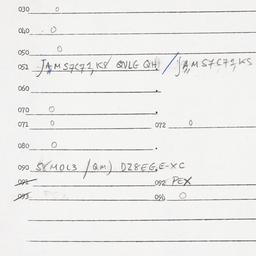 030 0
040 0
050 0
051 JAMS7C71,KS QVLG QH / JAMS7C71,KS
060
070 0
071 0 072 0
080 0
090 S(MOL3 /QM) DZ8EG.E-XC
091 092 PEX
093 096 0